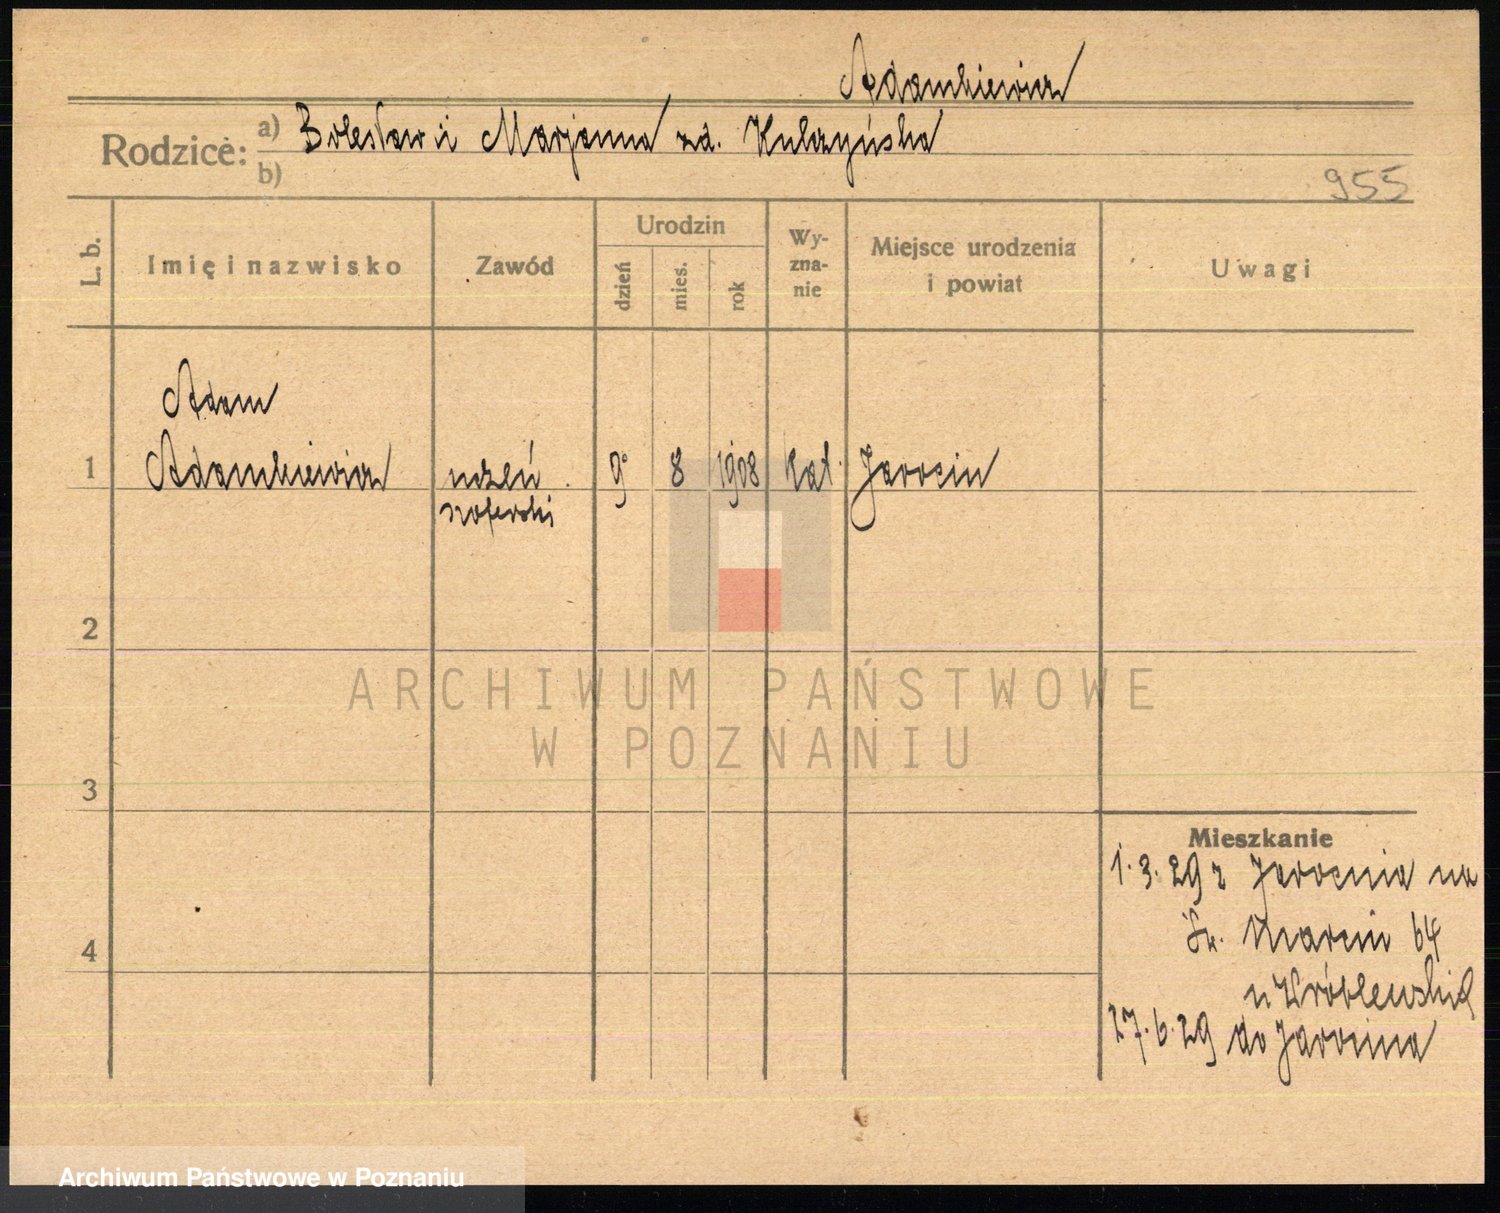 Adamkiewicz
Rodzice: a) Bolesław i Marjanna zd. Kulczyńska
b)
955
L. b.
Imię i nazwisko
Zawód
Urodzin
dzień
mies.
rok
Wy-
zna-
nie
Miejsce urodzenia
i powiat
Uwagi
Adam
1 Adamkiewicz uczeń 9 8 1908 kat. Jarocin
szoferski
2
ARCHIWUM PAŃSTWOWE
W POZNANIU
3
Mieszkanie
1.3.29 z Jarocina na
Św. Marcin 64
4
u Wróblewskich
27.6.29 do Jarocina
Archiwum Państwowe w Poznaniu